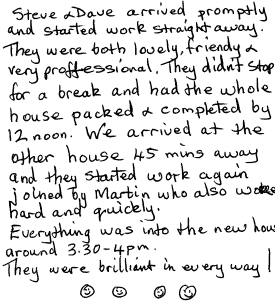 Steve & Dave arrived promptly
and started work straight away.
They were both lovely, friendly &
very proffessional. They didn't stop
for a break and had the whole
house packed & completed by
12 noon. We arrived at the
other house 45 mins away
and they started work again
joined by Martin who also
hard and quickly.
Everything was into the new
around 3.30-4pm.
They were brilliant in every way!